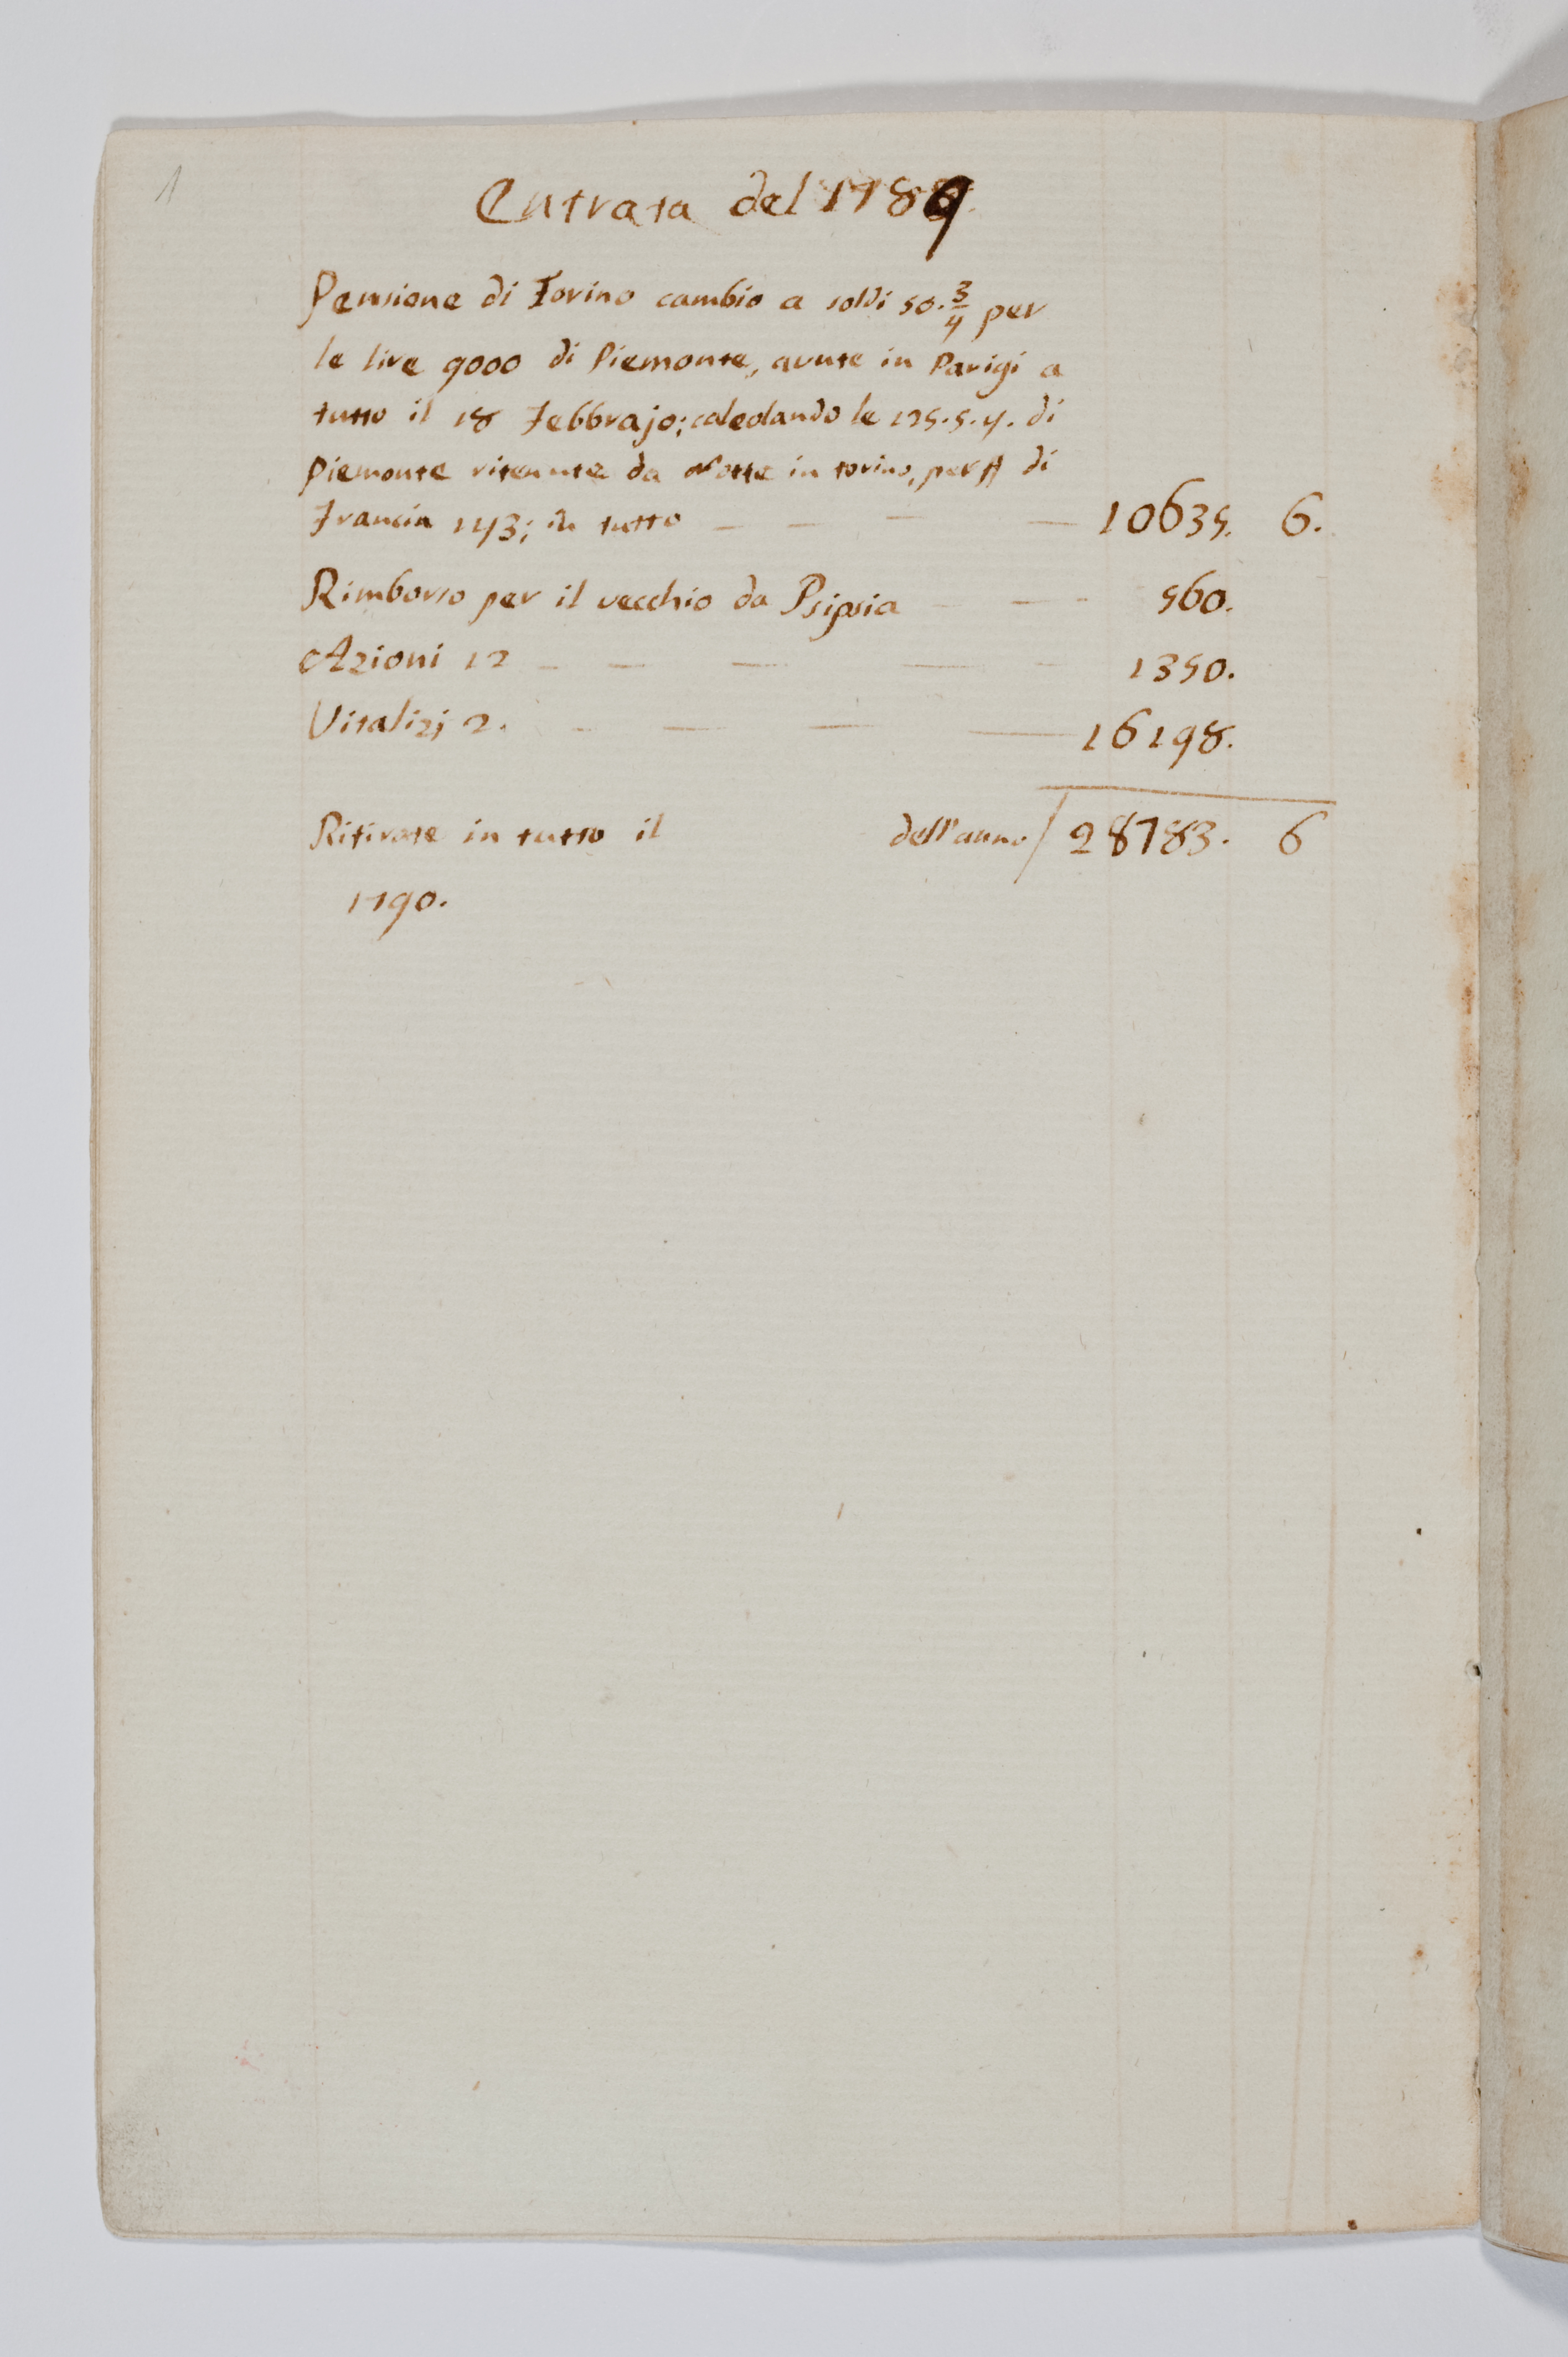 1
Entrata del 1789.
Pensione di Torino cambio a soldi 50. 3/4 per
le lire 9000 di Piemonte, avute in Parigi a
tutto il 18 Febbrajo; calcolando le 125.5.4. di
Piemonte ritenute da Notte in torino, per ₶ di
Francia 143; in tutto — — — — 10635. 6.
Rimborso per il vecchio da Psipsia — — 560.
Azioni 12 — — — — — 1350.
Vitalizj 2. — — — — 16198.
Ritirate in tutto il dell'anno / 28783. 6
1790.